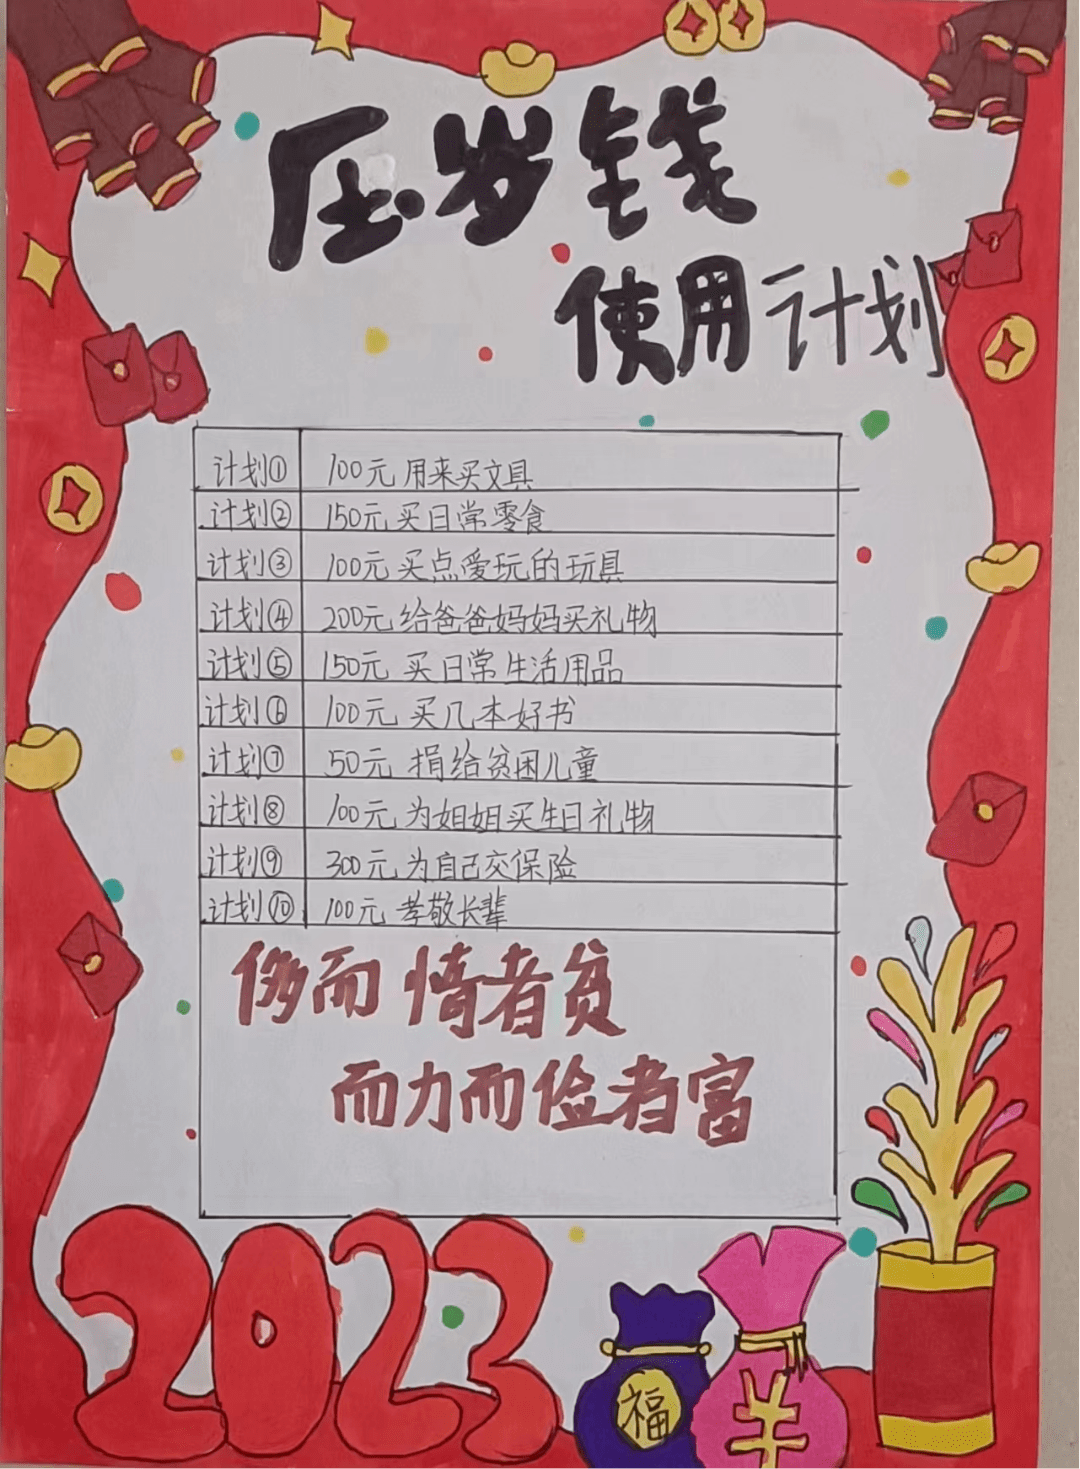 压岁钱
使用计划
计划① 100元 用来买文具
计划② 150元 买日常零食
计划③ 100元 买点爱玩的玩具
计划④ 200元 给爸爸妈妈买礼物
计划⑤ 150元 买日常生活用品
计划⑥ 100元 买几本好书
计划⑦ 50元 捐给贫困儿童
计划⑧ 100元 为姐姐买生日礼物
计划⑨ 300元 为自己交保险
计划⑩ 100元 孝敬长辈
侈而惰者贫
而力而俭者富
2023
福
¥